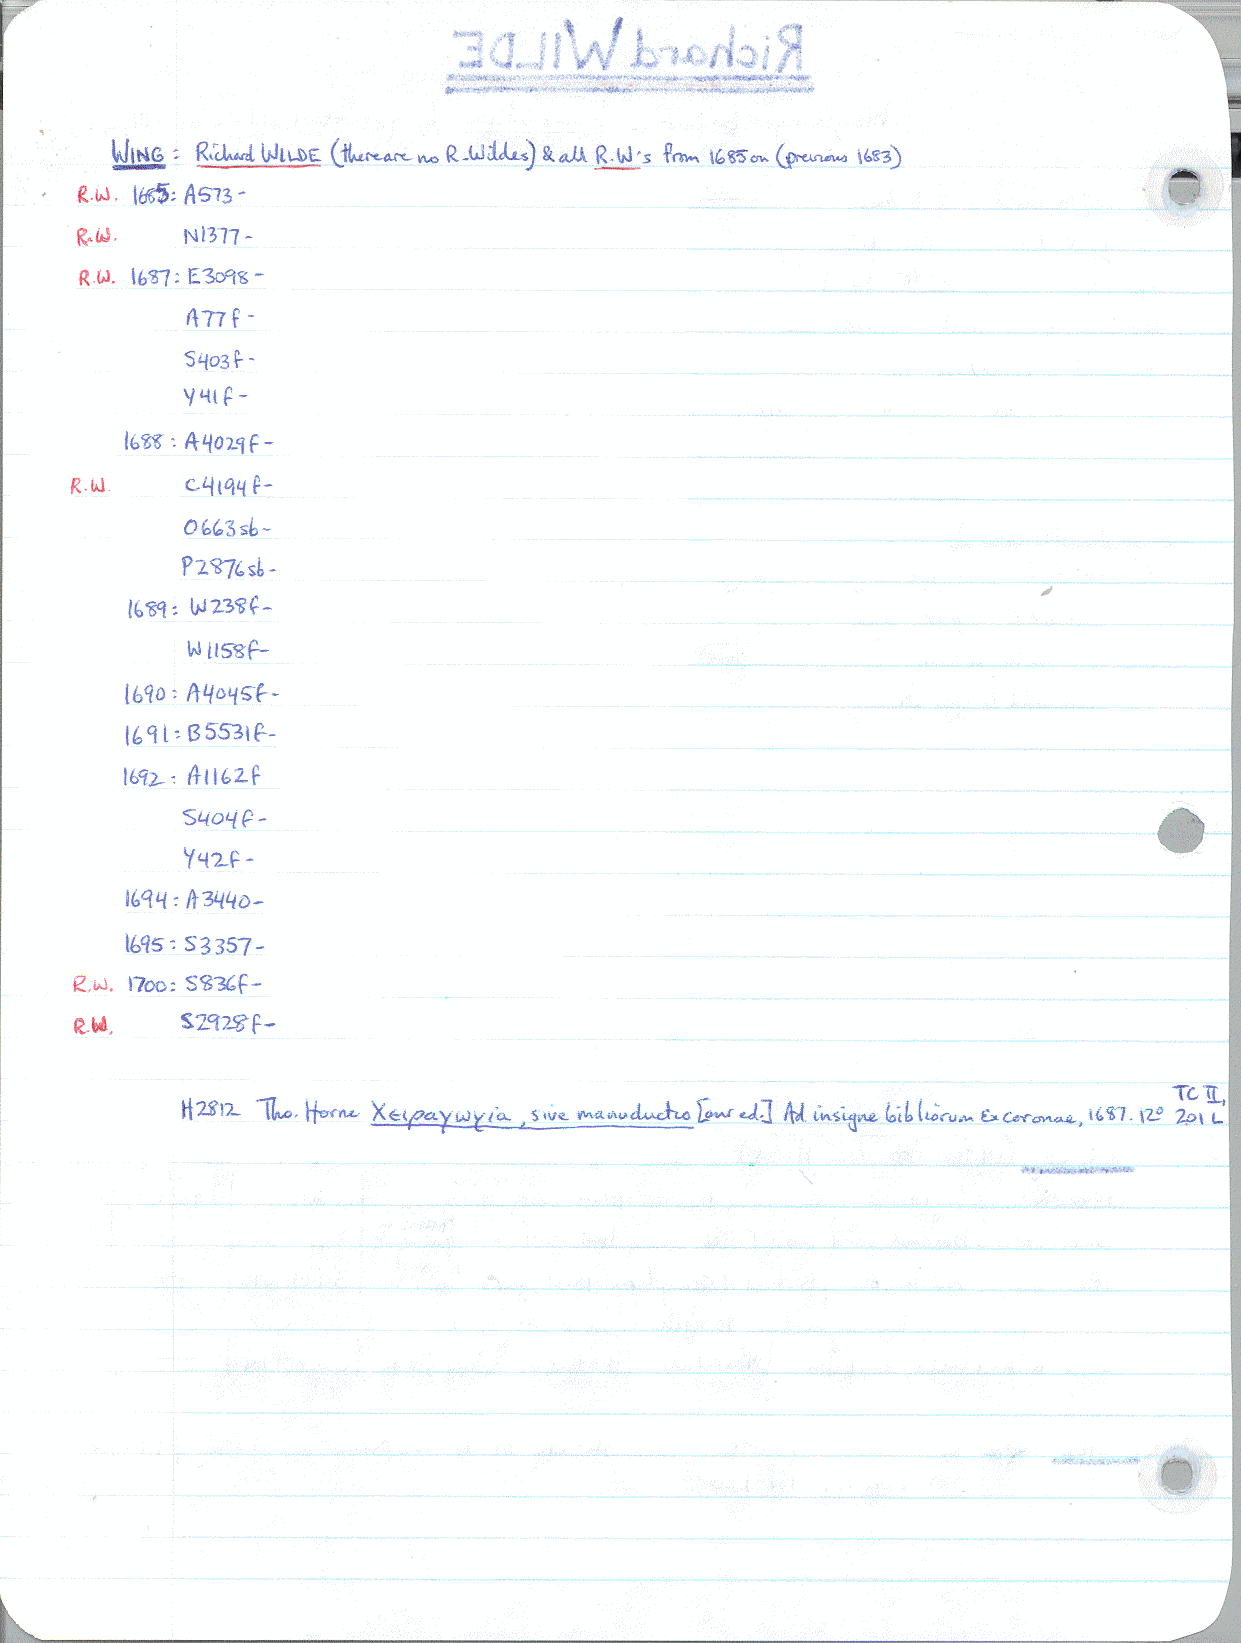 Richard WILDE
WING: Richard WILDE (there are no R. Wildes) & all R.W's from 1685 on (previous 1683)
R.W. 1685: A573-
R.W. N1377-
R.W. 1687: E3098-
A77f-
S403f-
Y41f-
1688: A4029f-
R.W. C4194f-
O663sb-
P2876sb-
1689: W238f-
W1158f-
1690: A4045f-
1691: B5531f-
1692: A1162f
S404f-
Y42f-
1694: A3440-
1695: S3357-
R.W. 1700: S836f-
R.W. S2928f-
TC II,
H2812 Tho. Horne Χειραγωγία, sive manuductio [our ed.] Ad insigne bibliorum Ex coronae, 1687. 12º 201 L